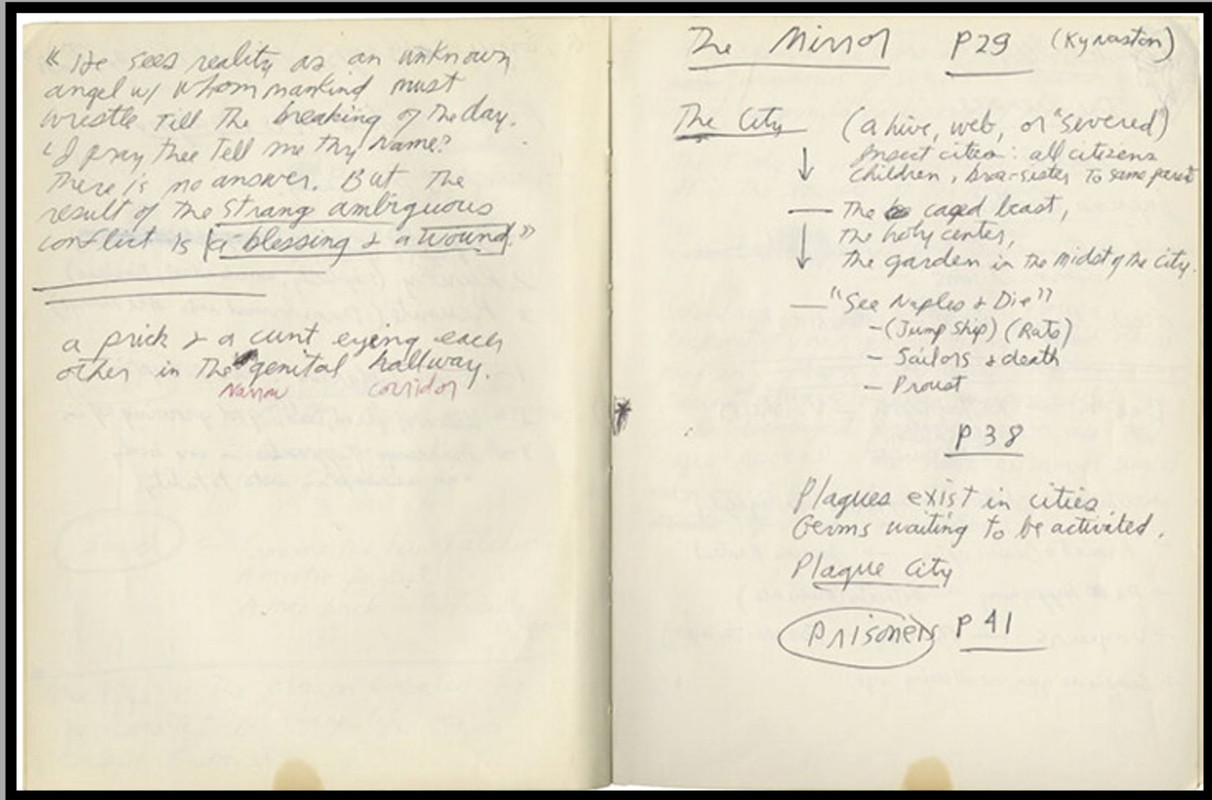 "He sees reality as an unknown
angel w/ whom mankind must
wrestle till the breaking of the day.
'I pray thee tell me thy name?
There is no answer. But the
result of the strang ambiguous
conflict is a blessing & a wound."
a prick & a cunt eying each
other in the genital hallway.
Narrow corridor
The Mirror P29 (Kynaston)
The City (a hive, web, or "severed")
Insect cities: all citizens
children, bro-sister to same parent
— The caged beast,
the holy center,
the garden in the midst of the city.
— "See Naples & Die"
- (Jump Ship) (Rats)
- Sailors & death
- Proust
P 38
Plagues exist in cities.
Germs waiting to be activated.
Plague City
Prisoners P 41